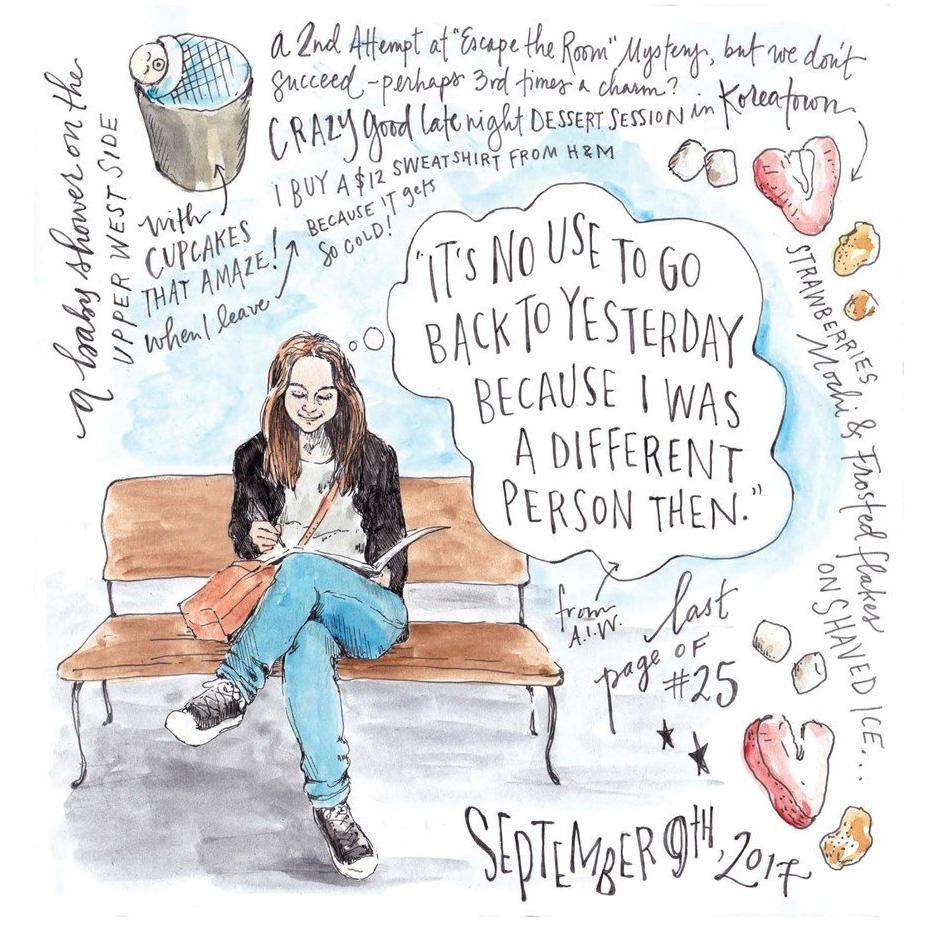 a 2nd Attempt at "Escape the Room" Mystery, but we don't
succeed - perhaps 3rd times a charm?
CRAZY good late night DESSERT SESSION in Koreatown
I BUY A $12 SWEATSHIRT FROM H&M
BECAUSE IT gets
SO COLD!
a baby shower on the
UPPER WEST SIDE
with
CUPCAKES
THAT AMAZE!
when I leave
"IT'S NO USE TO GO
BACK TO YESTERDAY
BECAUSE I WAS
A DIFFERENT
PERSON THEN."
from
A.I.W.
last
page OF
#25
STRAWBERRIES
Mochi & Frosted flakes
ON SHAVED ICE...
SEPTEMBER 9TH, 2017